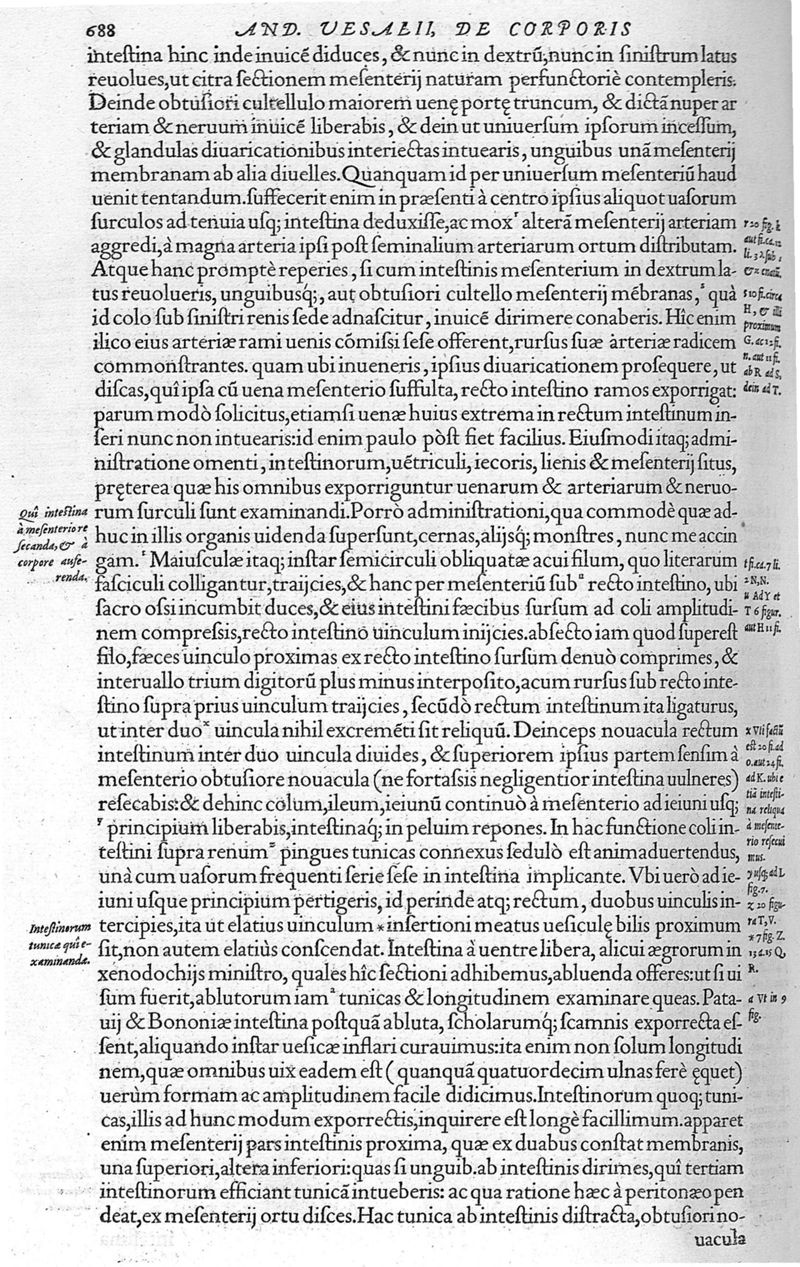 688 AND. VESALII, DE CORPORIS
inteſtina hinc inde inuicẽ diduces, & nunc in dextrũ, nunc in ſiniſtrum latus
reuolues, ut citra ſectionem meſenterij naturam perfunctoriè contempleris.
Deinde obtuſiori cultellulo maiorem uenę portę truncum, & dictã nuper ar
teriam & neruum inuicẽ liberabis, & dein ut uniuerſum ipſorum inceſſum,
& glandulas diuaricationibus interiectas intuearis, unguibus unã meſenterij
membranam ab alia diuelles. Quanquam id per uniuerſum meſenteriũ haud
uenit tentandum. ſuffecerit enim in præſenti à centro ipſius aliquot uaſorum
ſurculos ad tenuia uſq; inteſtina deduxiſſe, ac mox r alterã meſenterij arteriam
aggredi, à magna arteria ipſi poſt ſeminalium arteriarum ortum diſtributam.
Atque hanc promptè reperies, ſi cum inteſtinis meſenterium in dextrum la-
tus reuolueris, unguibusq́;, aut obtuſiori cultello meſenterij mẽbranas, s quà
id colo ſub ſiniſtri renis ſede adnaſcitur, inuicẽ dirimere conaberis. Hîc enim
ilico eius arteriæ rami uenis cõmiſsi ſeſe offerent, rurſus ſuæ arteriæ radicem
commonſtrantes. quam ubi inueneris, ipſius diuaricationem proſequere, ut
diſcas, quî ipſa cũ uena meſenterio ſuffulta, recto inteſtino ramos exporrigat:
parum modò ſolicitus, etiamſi uenæ huius extrema in rectum inteſtinum in-
ſeri nunc non intuearis: id enim paulo pòſt fiet facilius. Eiuſmodi itaq; admi-
niſtratione omenti, inteſtinorum, uẽtriculi, iecoris, lienis & meſenterij ſitus,
pręterea quæ his omnibus exporriguntur uenarum & arteriarum & neruo-
rum ſurculi ſunt examinandi. Porrò adminiſtrationi, qua commodè quæ ad-
huc in illis organis uidenda ſuperſunt, cernas, alijsq́; monſtres, nunc me accin
gam. t Maiuſculæ itaq; inſtar ſemicirculi obliquatæ acui filum, quo literarum
faſciculi colligantur, traijcies, & hanc per meſenteriũ ſub u recto inteſtino, ubi
ſacro oſsi incumbit duces, & eius inteſtini fæcibus ſurſum ad coli amplitudi-
nem compreſsis, recto inteſtino uinculum inijcies. abſecto iam quod ſupereſt
filo, fæces uinculo proximas ex recto inteſtino ſurſum denuò comprimes, &
interuallo trium digitorũ plus minus interpoſito, acum rurſus ſub recto inte-
ſtino ſupra prius uinculum traijcies, ſecũdò rectum inteſtinum ita ligaturus,
ut inter duo x uincula nihil excremẽti ſit reliquũ. Deinceps nouacula rectum
inteſtinum inter duo uincula diuides, & ſuperiorem ipſius partem ſenſim à
meſenterio obtuſiore nouacula (ne fortaſsis negligentior inteſtina uulneres)
reſecabis: & dehinc colum, ileum, ieiunũ continuò à meſenterio ad ieiuni uſq;
y principium liberabis, inteſtinaq́; in peluim repones. In hac functione coli in-
teſtini ſupra renum z pingues tunicas connexus ſedulò eſt animaduertendus,
unà cum uaſorum frequenti ſerie ſeſe in inteſtina implicante. Vbi uerò ad ie-
iuni uſque principium pertigeris, id perinde atq; rectum, duobus uinculis in-
tercipies, ita ut elatius uinculum * inſertioni meatus ueſiculę bilis proximum
ſit, non autem elatiùs conſcendat. Inteſtina à uentre libera, alicui ægrorum in
xenodochijs miniſtro, quales hîc ſectioni adhibemus, abluenda offeres: ut ſi ui
ſum fuerit, ablutorum iam a tunicas & longitudinem examinare queas. Pata-
uij & Bononiæ inteſtina poſtquã abluta, ſcholarumq́; ſcamnis exporrecta eſ-
ſent, aliquando inſtar ueſicæ inflari curauimus: ita enim non ſolum longitudi
nem, quæ omnibus uix eadem eſt (quanquã quatuordecim ulnas ferè ęquet)
uerùm formam ac amplitudinem facile didicimus. Inteſtinorum quoq; tuni-
cas, illis ad hunc modum exporrectis, inquirere eſt longè facillimum. apparet
enim meſenterij pars inteſtinis proxima, quæ ex duabus conſtat membranis,
una ſuperiori, altera inferiori: quas ſi unguib. ab inteſtinis dirimes, quî tertiam
inteſtinorum efficiant tunicã intueberis: ac qua ratione hæc à peritonæo pen
deat, ex meſenterij ortu diſces. Hac tunica ab inteſtinis diſtracta, obtuſiori no-
uacula
Quî inteſtina
à meſenterio re
ſecanda, & à
corpore aufe-
renda.
Inteſtinorum
tunicæ quî e-
xaminandæ.
r 20 fig. k
aut fi. ca. 12
li. 3 z. ſub
s 10 fi. circa
H, & illi
proximum
G. ac 12 fi.
n. aut 11 fi.
ab R ad S,
dein ad T.
t fi. ca. 7 li.
2 N, N.
u Ad Y et
T 6 figur.
aut H 11 fi.
x Vti factũ
eſt 20 fi. ad
o. aut 24 fi.
ad K. ubi e
tiã inteſti-
na reliqua
à meſente-
rio reſecui
mus.
y uſq; ad L
fig. 7.
z 20 figu-
ra T, V.
* 7 fig. Z.
13 d. 15 Q,
R.
a Vt in 9
fig.